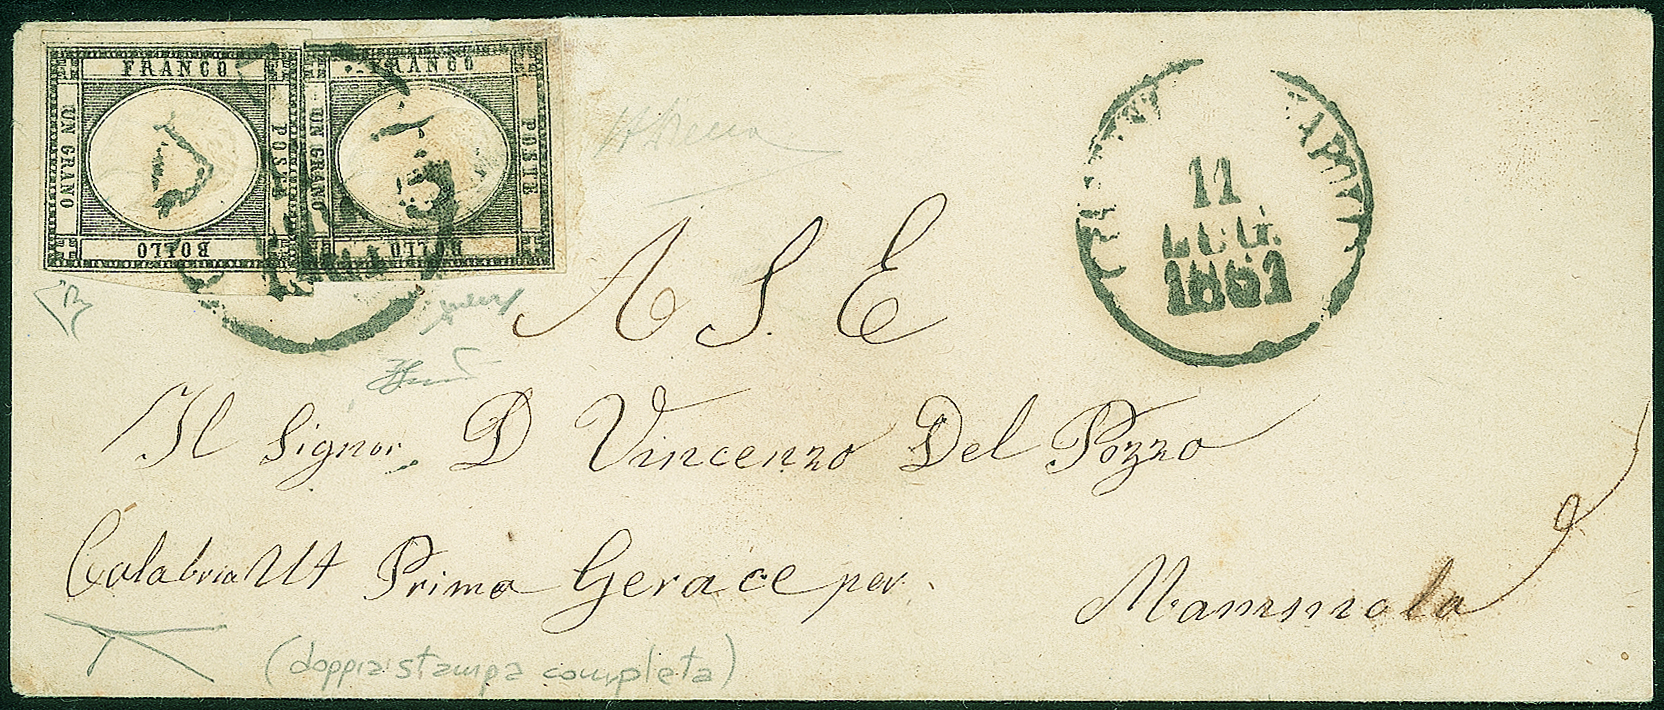 FRANCO
UN GRANO
POSTE
BOLLO
FRANCO
UN GRANO
POSTE
BOLLO
11
LUG.
1861
A S. E
Il Signor D Vincenzo Del Pozzo
Calabria Ult Prima Gerace per
Mammola
(doppia stampa completa)